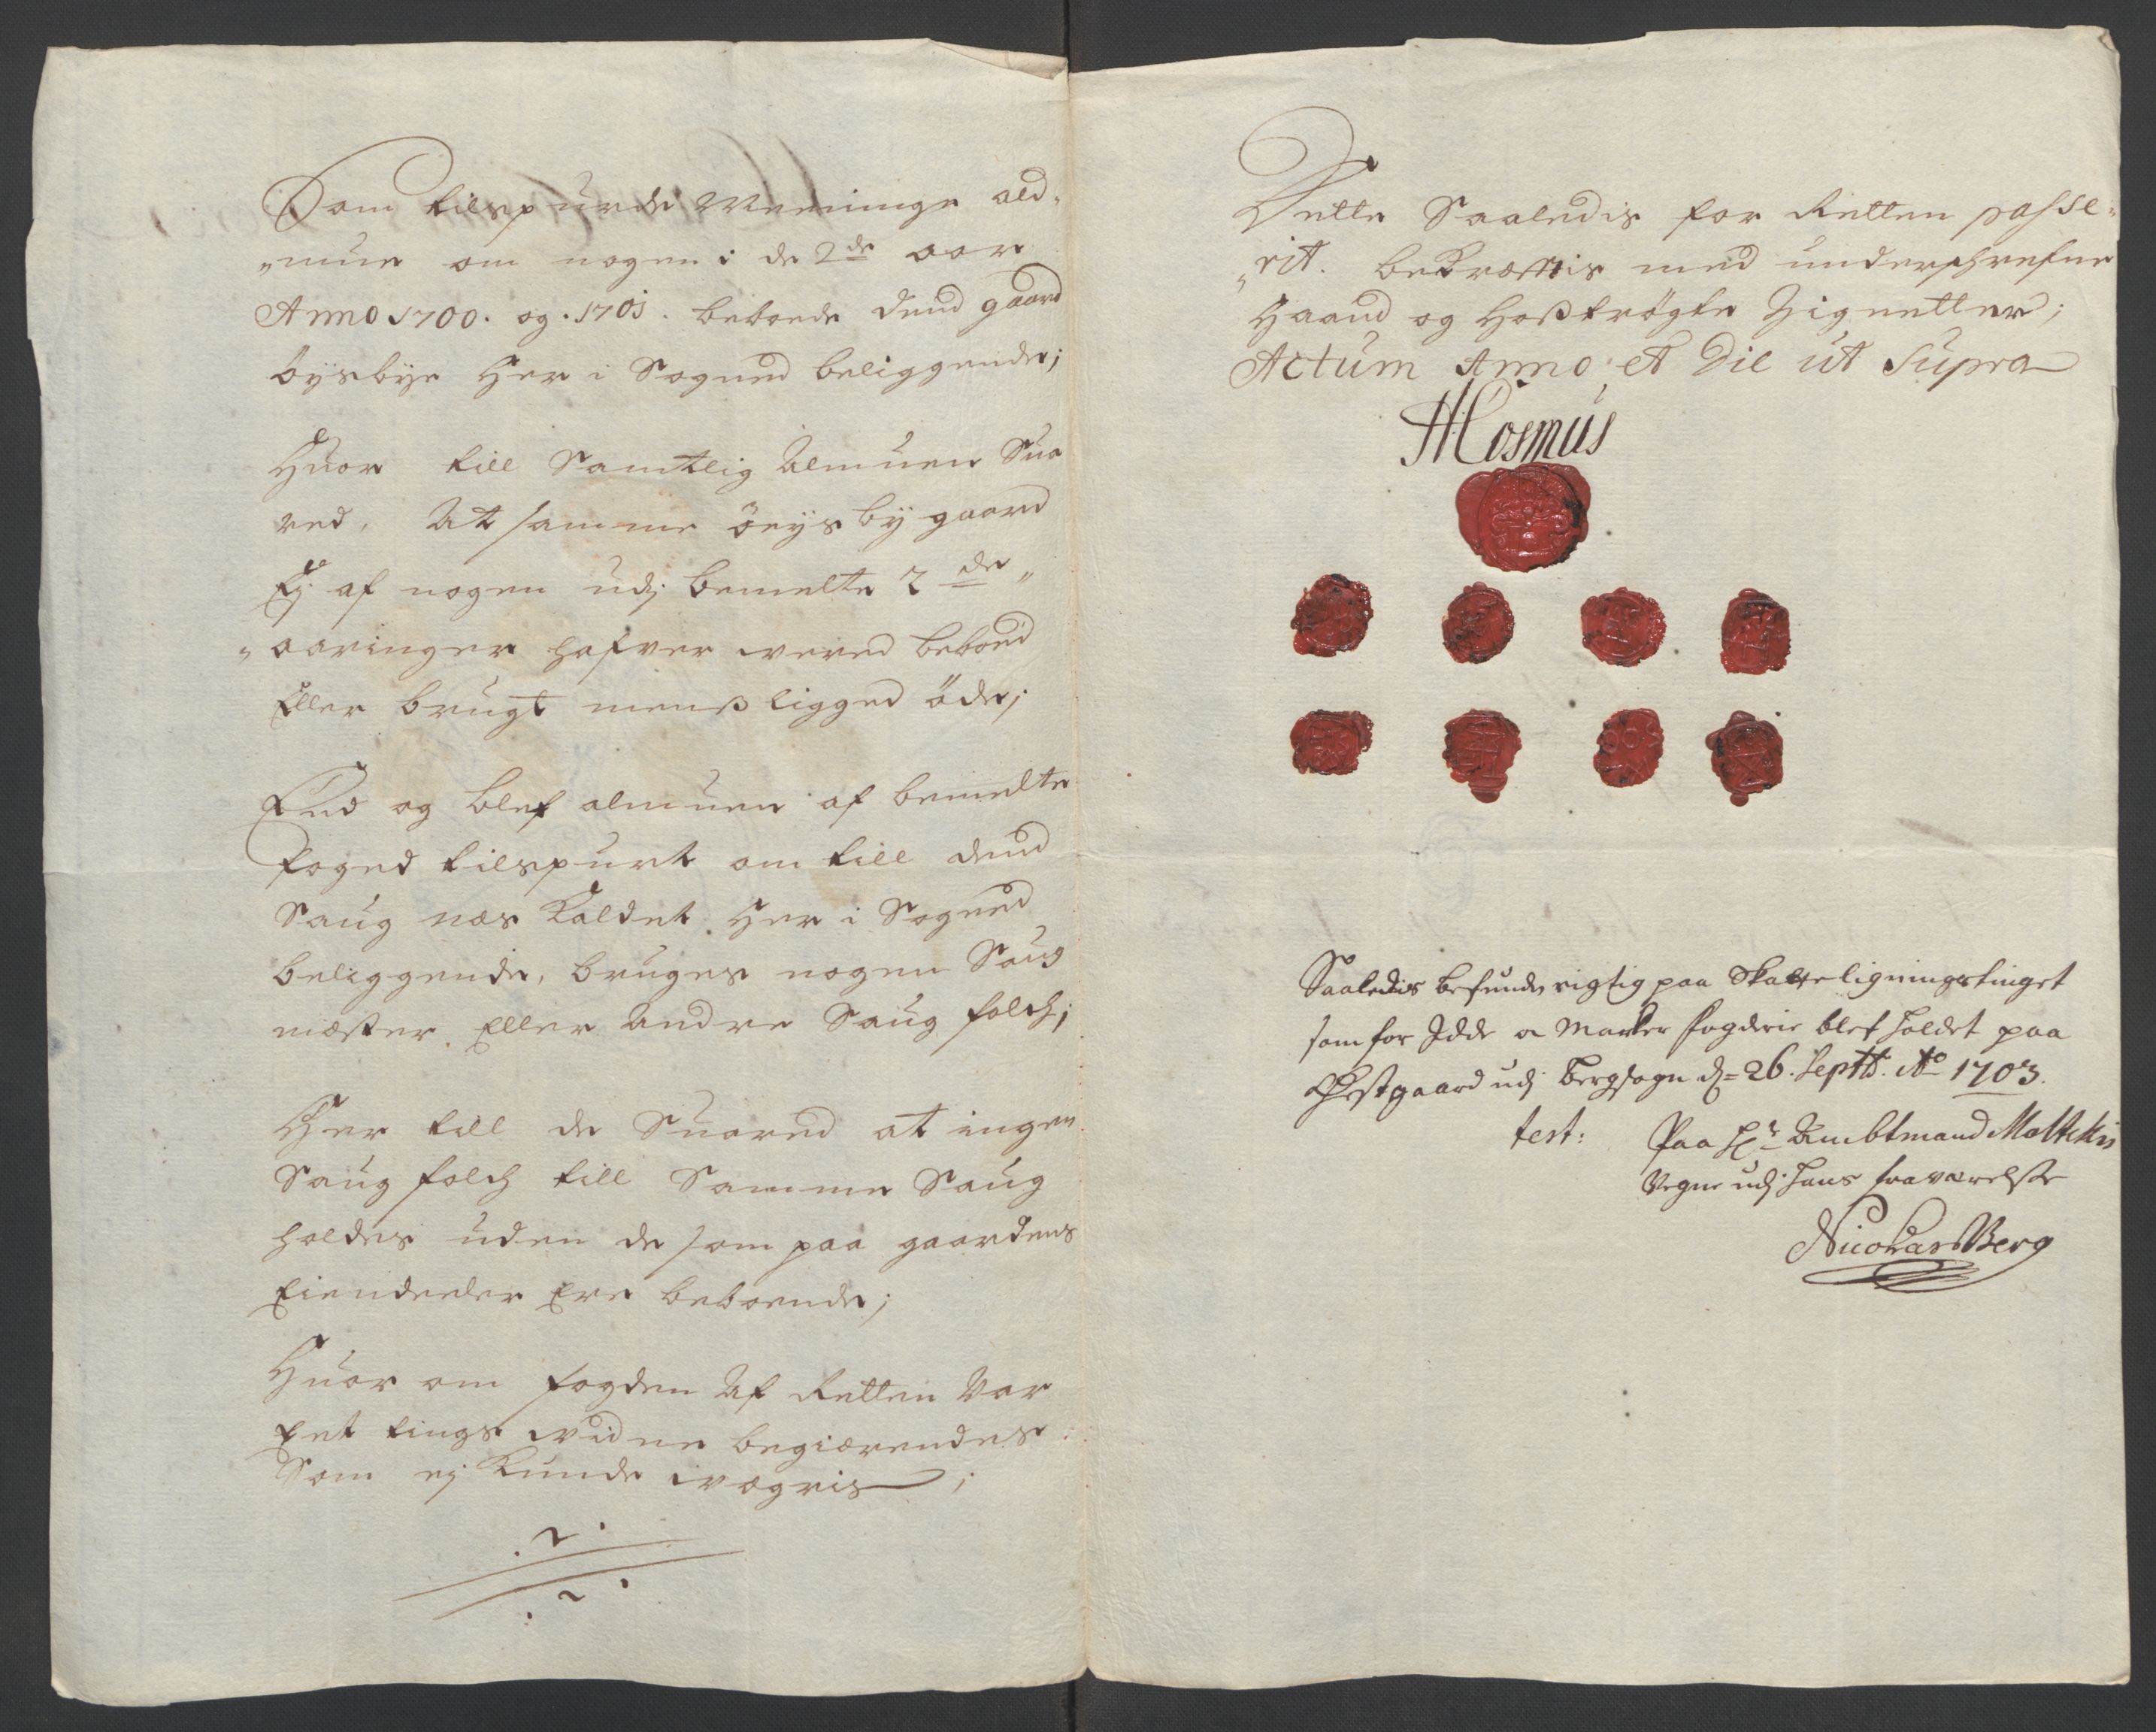 Som tilspurde Meninge ald„
„mue om nogen i de 2de aar
Anno 1700. og. 1701. beboede dend gaard
öysbye Her i Sogned beliggende;
Huor till Samtlig Almuen Sua
red, At samme öeysby gaard
Ej af nogen udj bemelte 2de„
„aaringer hafver wered beboed
Eller brugt menß ligged öde;
End og blef almuen af bemelte
foged tilspurt om till dend
Saug næs Kaldet Her i Sogned
beliggende, bruges nogen Saug
mæster Eller Andre Saug folch;
Her till de Suared at ingen
Saug folch till Samme Saug
holdes uden de som paa gaardens
Eiendeeler Ere beboende;
Huor om fogden Af Retten Var
Eet tings widne begiærendes
Som ej Kunde wægris;
Dette Saaledis for Retten passe„
„rit. bekræftis med underschrefne
Haand og Hoßtrögte Zignetter;
Actum Anno et Die ut Supra
Saaledis befunden rigtig paa Skatteligningstinget
som for Idde og Marker fogderie blef holdet paa
udj Bergsogn d= 26. Septb. Ao 1703.
test: Paa Hr Ambtmand Moltkis
Vegne udj hans fraværelse
Nicolas Berg